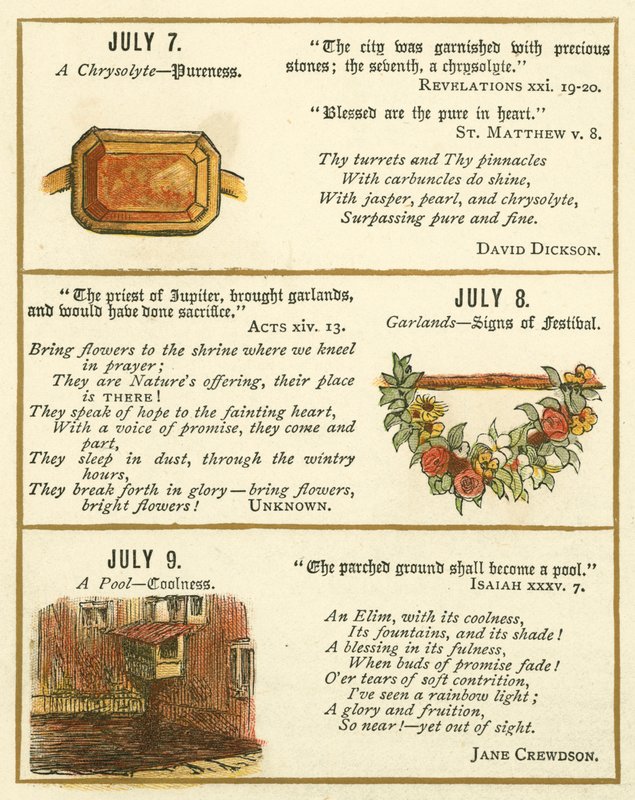 JULY 7.
A Chrysolyte—Pureness.
“The city was garnished with precious
stones; the seventh, a chrysolyte.”
REVELATIONS xxi. 19-20.
“Blessed are the pure in heart.”
ST. MATTHEW v. 8.
Thy turrets and Thy pinnacles
With carbuncles do shine,
With jasper, pearl, and chrysolyte,
Surpassing pure and fine.
DAVID DICKSON.
“The priest of Jupiter, brought garlands,
and would have done sacrifice.”
ACTS xiv. 13.
Bring flowers to the shrine where we kneel
in prayer;
They are Nature's offering, their place
is THERE!
They speak of hope to the fainting heart,
With a voice of promise, they come and
part,
They sleep in dust, through the wintry
hours,
They break forth in glory—bring flowers,
bright flowers! UNKNOWN.
JULY 8.
Garlands—Signs of Festival.
JULY 9.
A Pool—Coolness.
“The parched ground shall become a pool.”
ISAIAH xxxv. 7.
An Elim, with its coolness,
Its fountains, and its shade!
A blessing in its fulness,
When buds of promise fade!
O'er tears of soft contrition,
I've seen a rainbow light;
A glory and fruition,
So near!—yet out of sight.
JANE CREWDSON.